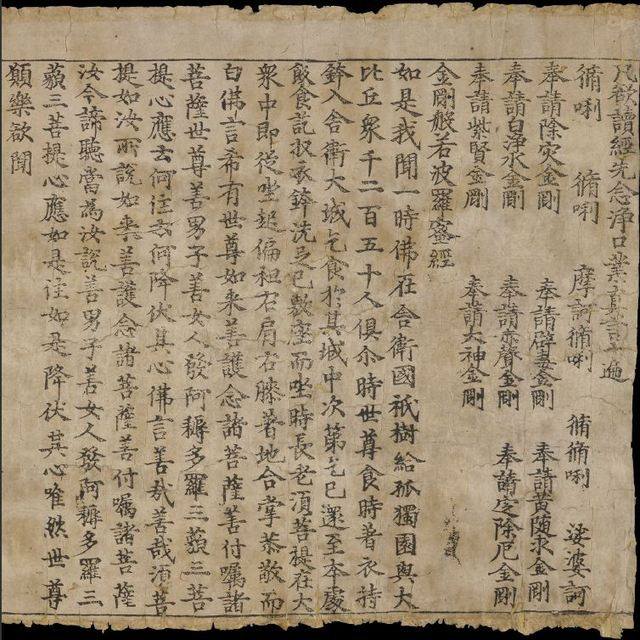 凡欲讀經先念淨口業真言一遍
脩唎 脩唎 摩訶脩唎 脩脩唎 娑婆訶
奉請除灾金剛 奉請辟毒金剛 奉請黃随求金剛
奉請白淨水金剛 奉請赤聲金剛 奉請定除厄金剛
奉請紫賢金剛 奉請大神金剛
金剛般若波羅蜜經
如是我聞一時佛在舍衛國祇樹給孤獨園與大
比丘衆千二百五十人俱尒時世尊食時著衣持
鉢入舍衛大城乞食於其城中次第乞已還至本處
飯食訖收衣鉢洗足已敷座而坐時長老須菩提在大
衆中即從坐起偏袒右肩右膝著地合掌恭敬而
白佛言希有世尊如来善護念諸菩薩善付囑諸
菩薩世尊善男子善女人發阿耨多羅三藐三菩
提心應云何住云何降伏其心佛言善哉善哉須菩
提如汝所說如来善護念諸菩薩善付囑諸菩薩
汝今諦聽當為汝說善男子善女人發阿耨多羅三
藐三菩提心應如是住如是降伏其心唯然世尊
願樂欲聞